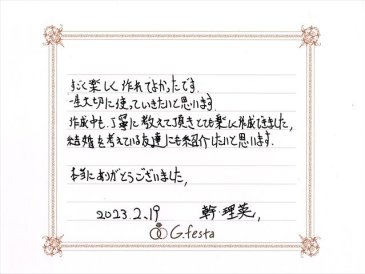 すごく楽しく作れてよかったです。
一生大切に使っていきたいと思います。
作成中も、丁寧に教えて頂きとても楽しく作成できました。
結婚を考えている友達にも紹介したいと思います。
本当にありがとうございました。
2023.2.19 幹・理英
G.festa